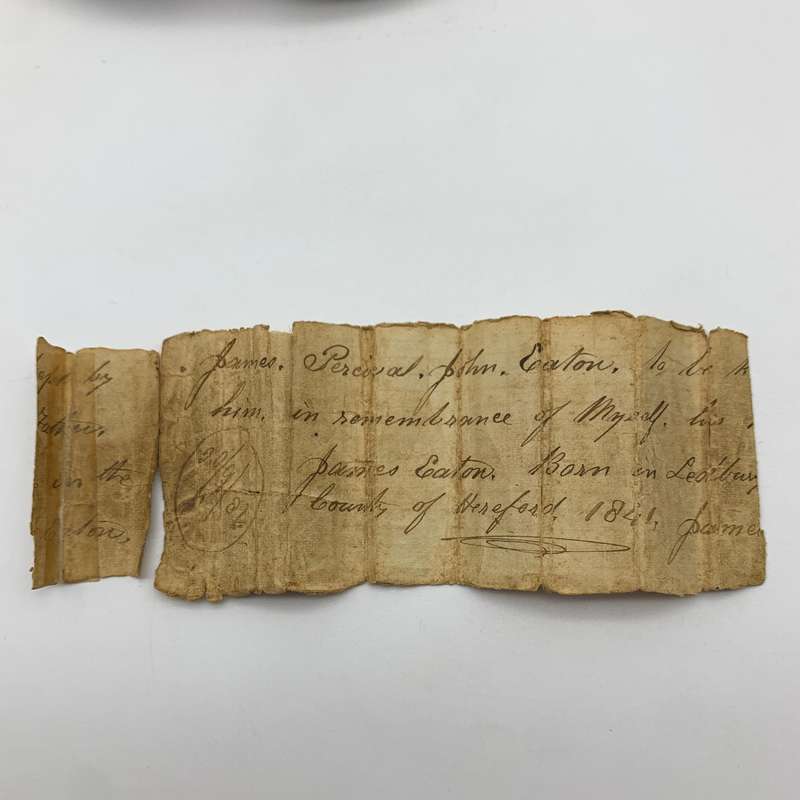 by
Father,
in the
Eaton,
James. Percival. John. Eaton. to be
him. in remembrance of Myself. his
James Eaton. Born in Ledbury
County of Hereford, 1841, James